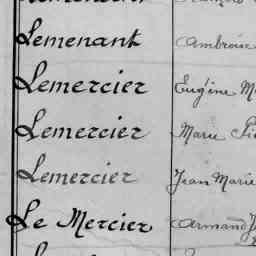 Lemenant Ambroise
Lemercier Eugène M
Lemercier Marie
Lemercier Jean Marie
Le Mercier Armand